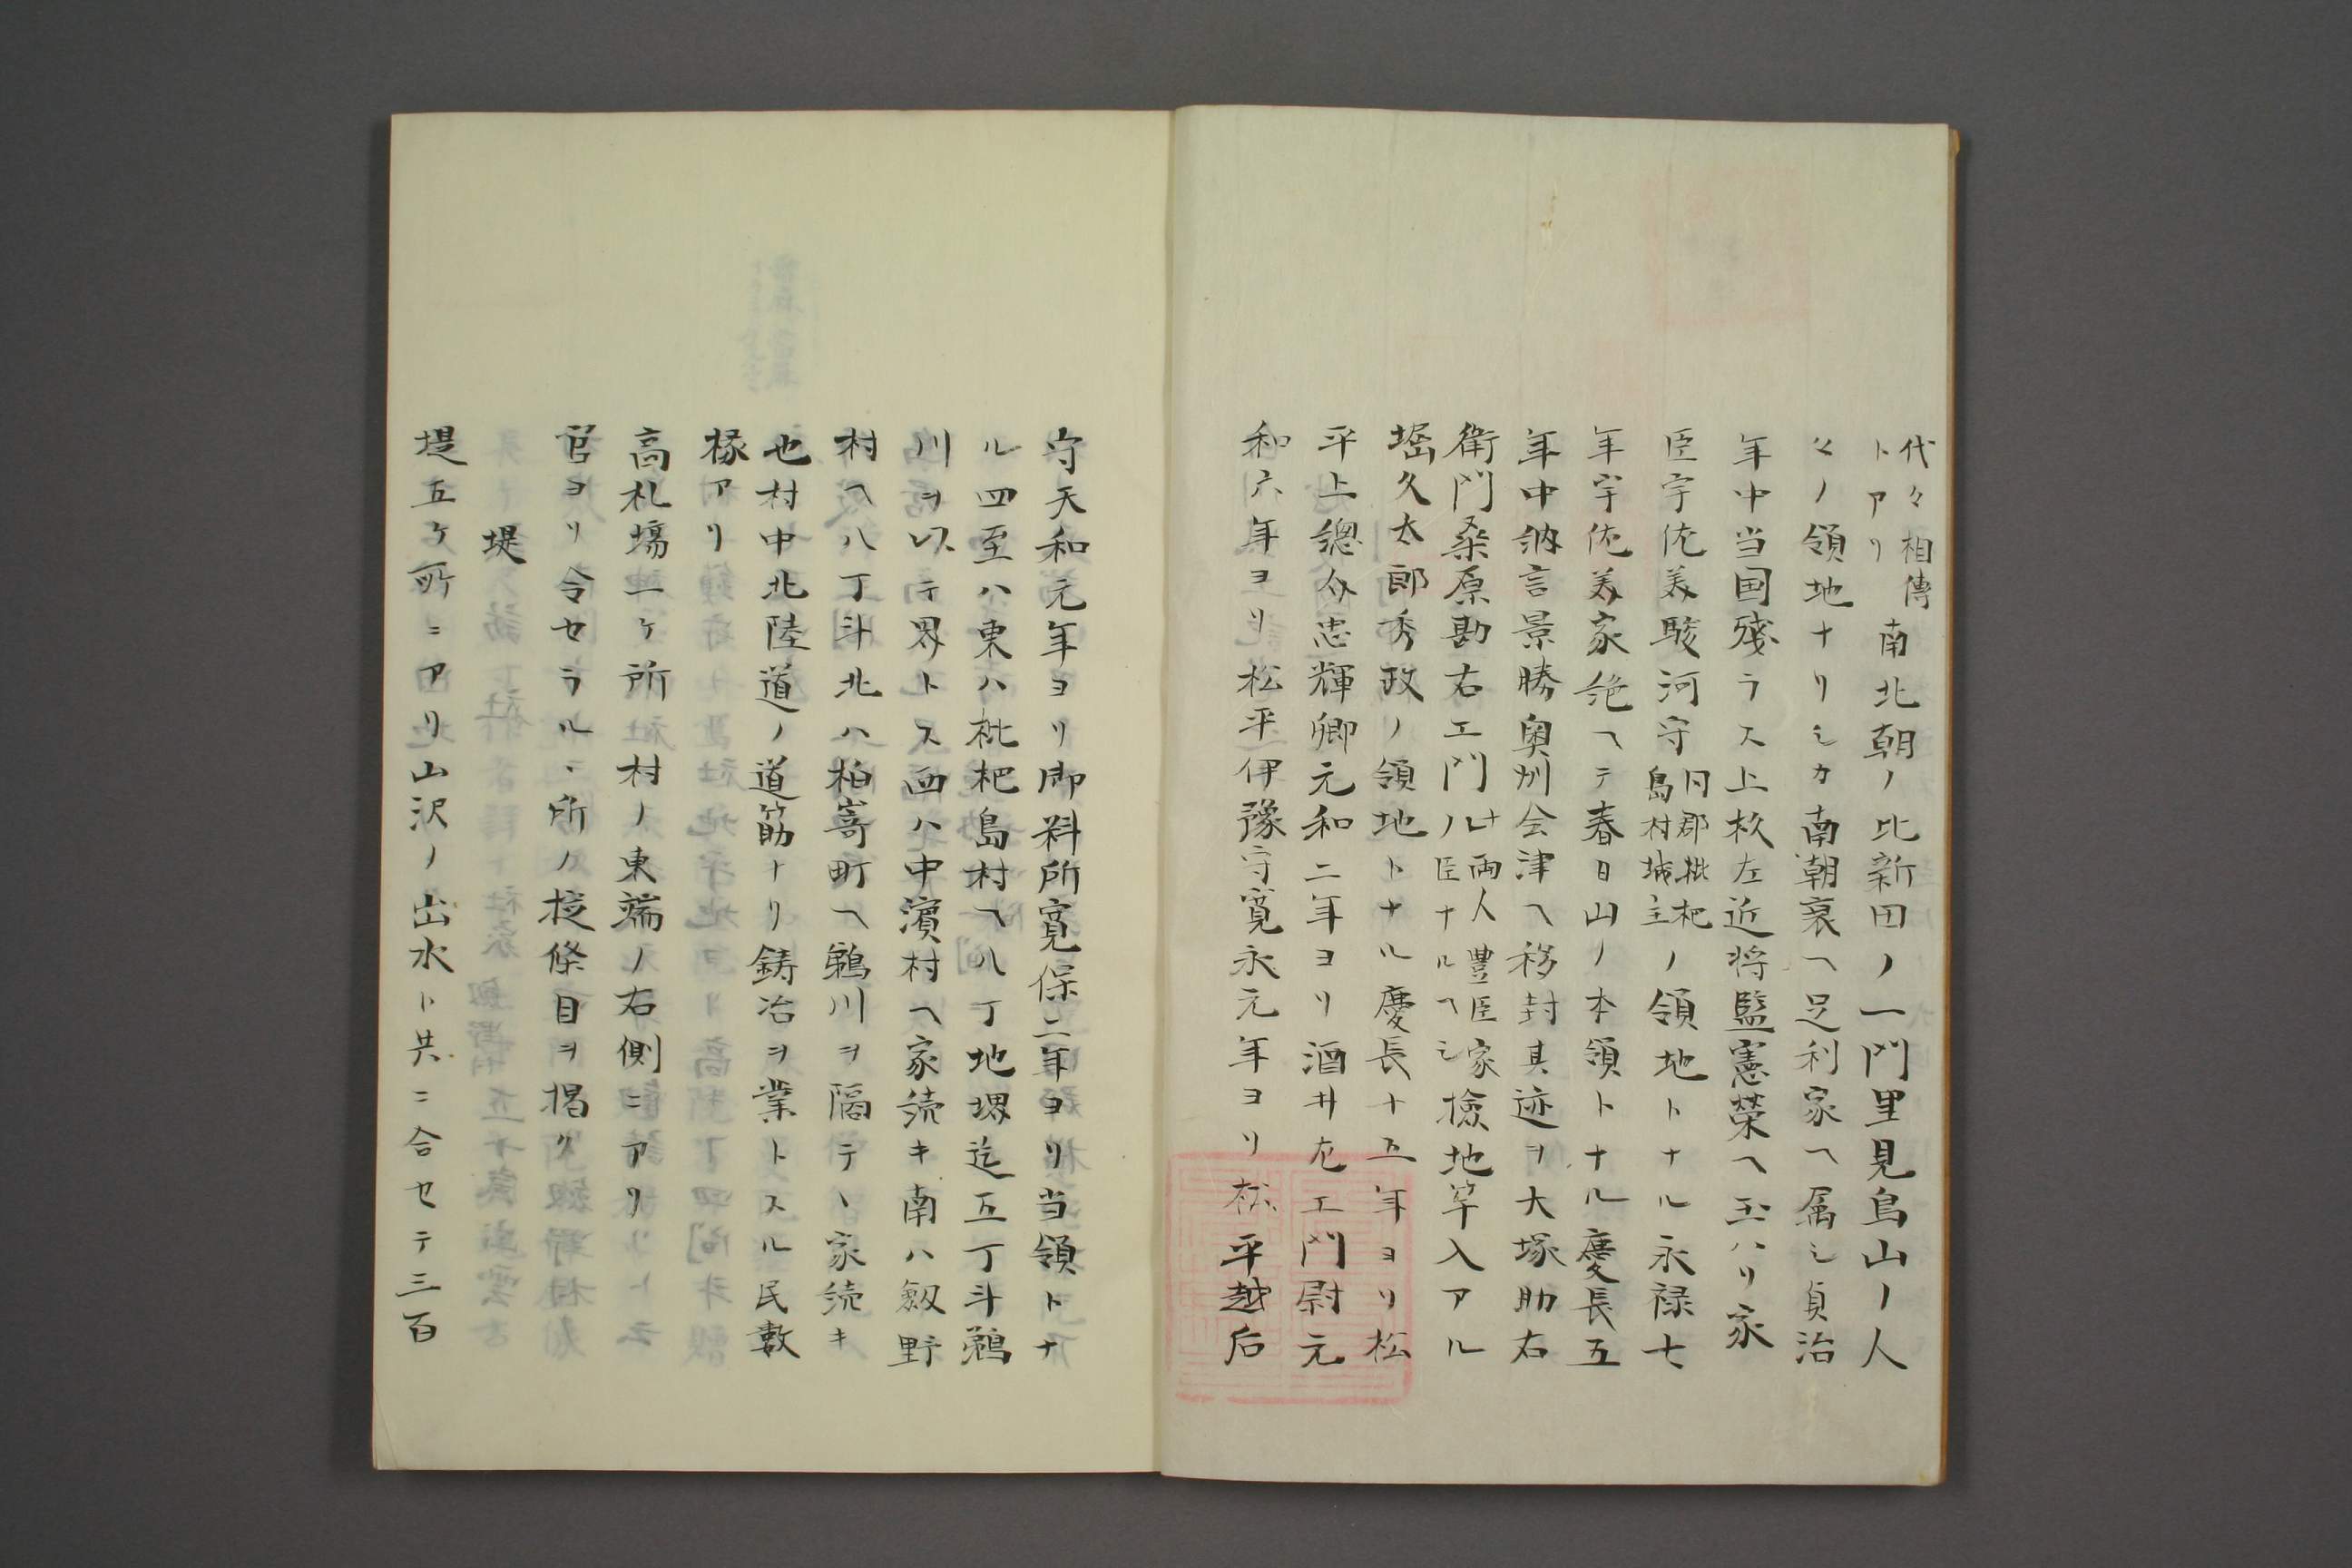 代々相傳
トアリ
南北朝ノ比新田ノ一門里見鳥山ノ人
々ノ領地ナリシカ南朝衰ヘ足利家ヘ属シ貞治
年中当国残ラス上杦左近将監憲榮ヘ玉ハリ家
臣宇佐美駿河守
同郡枇杷
島村城主
ノ領地トナル永禄七
年宇佐美家絶ヘテ春日山ノ本領トナル慶長五
年中納言景勝奥州会津ヘ移封其迹ヲ大塚助右
衛門桑原勘右エ門
ナル両人豊臣家
ノ臣ナルヘシ
検地竿入アル
堀久太郎秀政ノ領地トナル慶長十五年ヨリ松
平上總介忠輝卿元和二年ヨリ酒井左エ門尉元
和六年ヨリ松平伊豫守寛永元年ヨリ松平越后
守天和元年ヨリ御料所寛保二年ヨリ当領トナ
ル四至ハ東ハ枇杷島村ヘ八丁地堺迄五丁斗鵜
川ヲ以テ界トス西ハ中濱村ヘ家続キ南ハ劔野
村ヘ八丁斗北ハ柏嵜町ヘ鵜川ヲ隔テヽ家続キ
也村中北陸道ノ道筋ナリ鋳冶ヲ業トスル民數
椽アリ
高札塲一ケ所村ノ東端ノ右側ニアリ
官ヨリ令セラルヽ所ノ掟條目ヲ掲ク
堤
堤五ケ所ニアリ山沢ノ出水ト共ニ合セテ三百